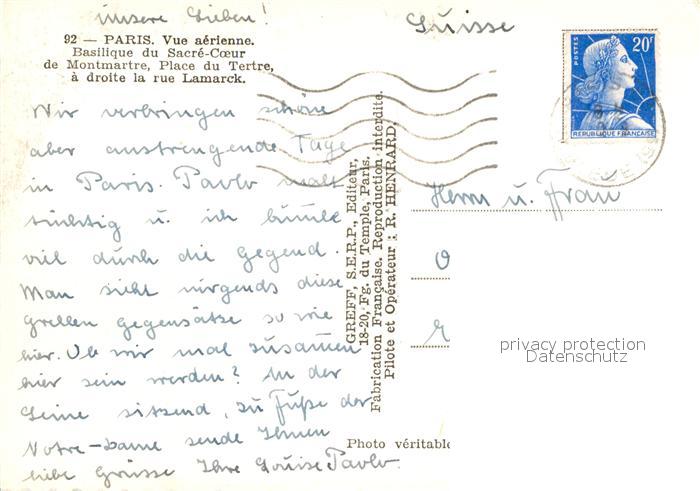 unsere Lieben!
Suisse
92 — PARIS. Vue aérienne.
Basilique du Sacré-Cœur
de Montmartre, Place du Tertre,
à droite la rue Lamarck.
POSTES
20F
REPUBLIQUE FRANÇAISE
Wir verbringen schöne
aber anstrengende Tage
in Paris. Pavlo malt
tüchtig u. ich bumle
viel durch die Gegend.
Man sieht nirgends diese
grellen Gegensätze so wie
hier. Ob wir mal zusamen
hier sein werden? An der
Seine sitzend, zu Fuße der
Notre-Dame sende Ihnen
liebe Grüsse Ihre Louise Pavlo.
GREFF, S.E.R.P., Editeur,
18-20, Fg. du Temple, Paris.
Fabrication Française. Reproduction interdite.
Pilote et Opérateur : R. HENRARD.
Photo véritable
Herrn u. Frau
privacy protection
Datenschutz